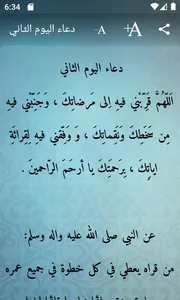 6:34
دعاء اليوم الثاني -A +A
دعاء اليوم الثاني
اَللّهُمَّ قَرِّبْني فيهِ اِلى مَرضاتِكَ ، وَجَنِّبْني فيهِ
مِن سَخَطِكَ وَنَقِماتِكَ ، وَ وَفِّقني فيهِ لِقِرائَةِ
اياتِِكَ ، بِرَحمَتِكَ يا أرحَمَ الرّاحمينَ .
عن النبي صلى الله عليه وآله وسلم:
من قراه يعطي في كل خطوة في جميع عمره